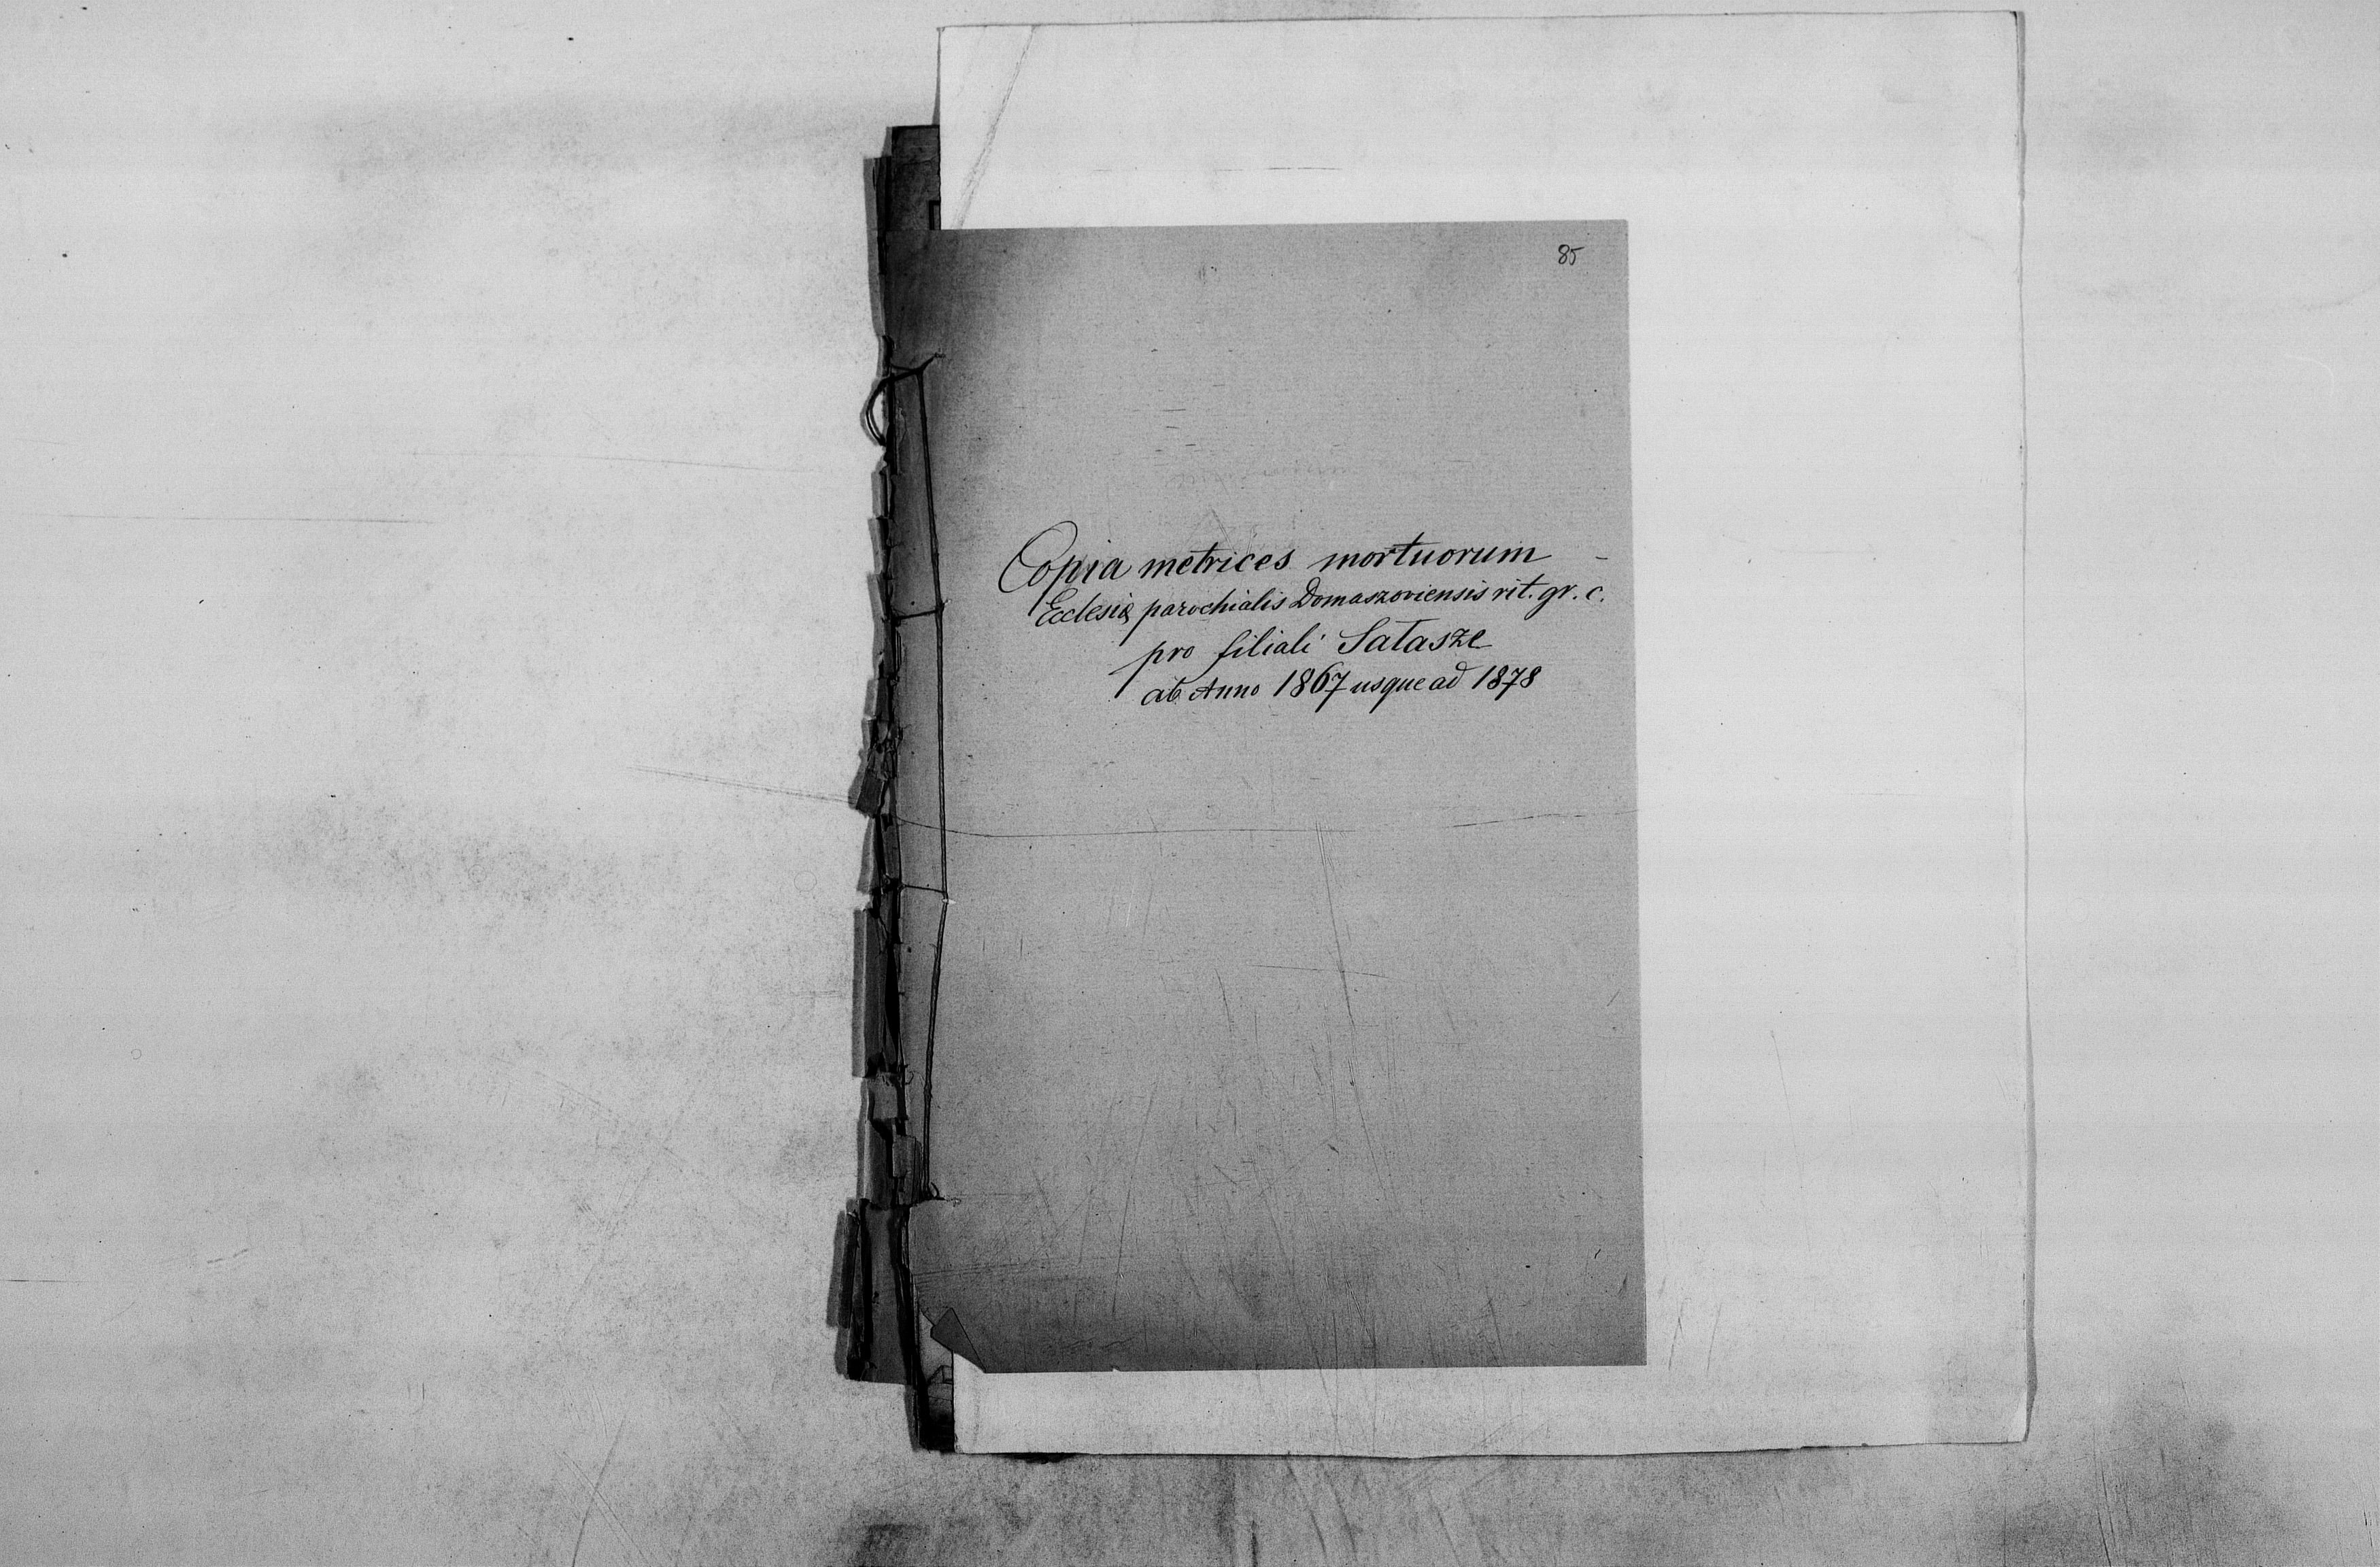 85
Copia metrices mortuorum
Ecclesiæ parochialis Domaszoviensis rit. gr. c.
pro filiali Sałasze
ab Anno 1867 usque ad 1878